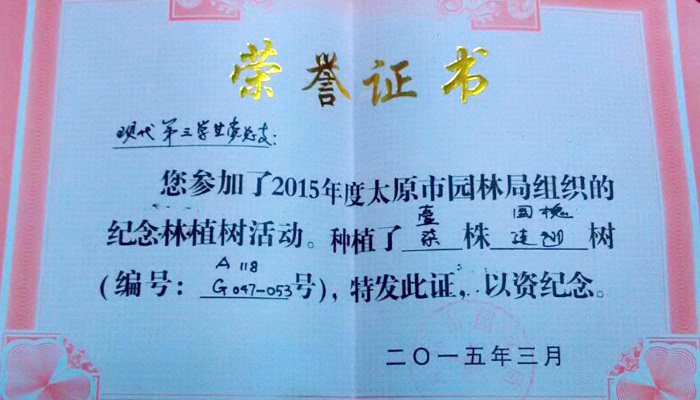 荣誉证书
现代第三学生党总支:
您参加了2015年度太原市园林局组织的
壹 国槐
纪念林植树活动。种植了 柒 株 连翘 树
A 118
(编号: G047-053号),特发此证,以资纪念。
二〇一五年三月